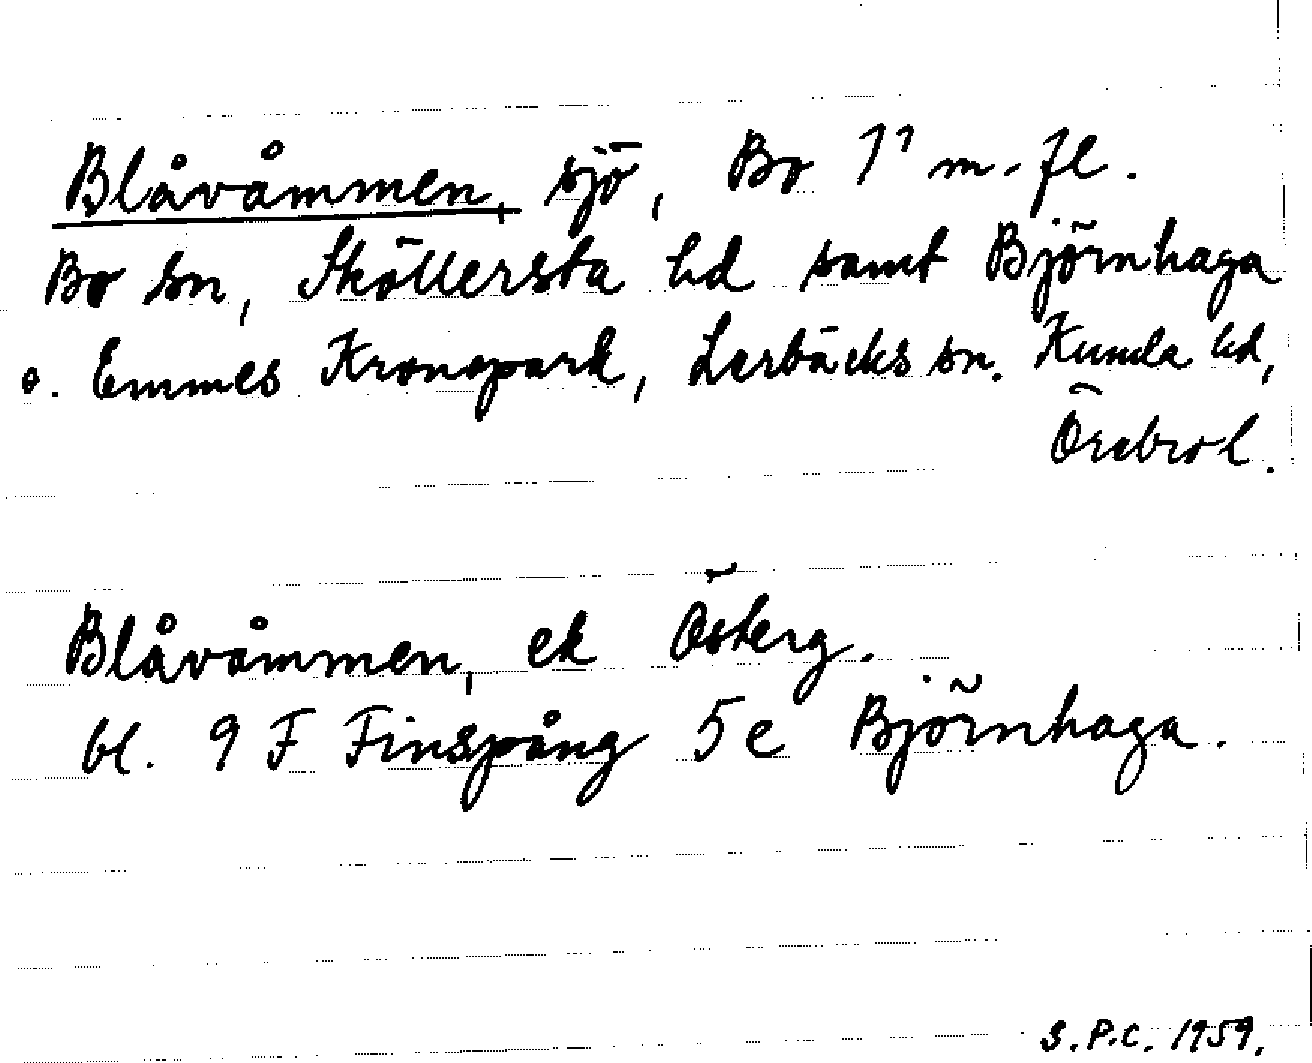 Blåvåmmen, sjö, Bo 1¹ m. fl.
Bo sn, Sköllersta hd samt Björnhaga
o. Emmes Kronopark, Lerbäcks sn. Kumla hd,
Örebro l.
Blåvåmmen, ek Österg.
bl. 9 F Finspång 5 e Björnhaga.
S.P.C. 1959.